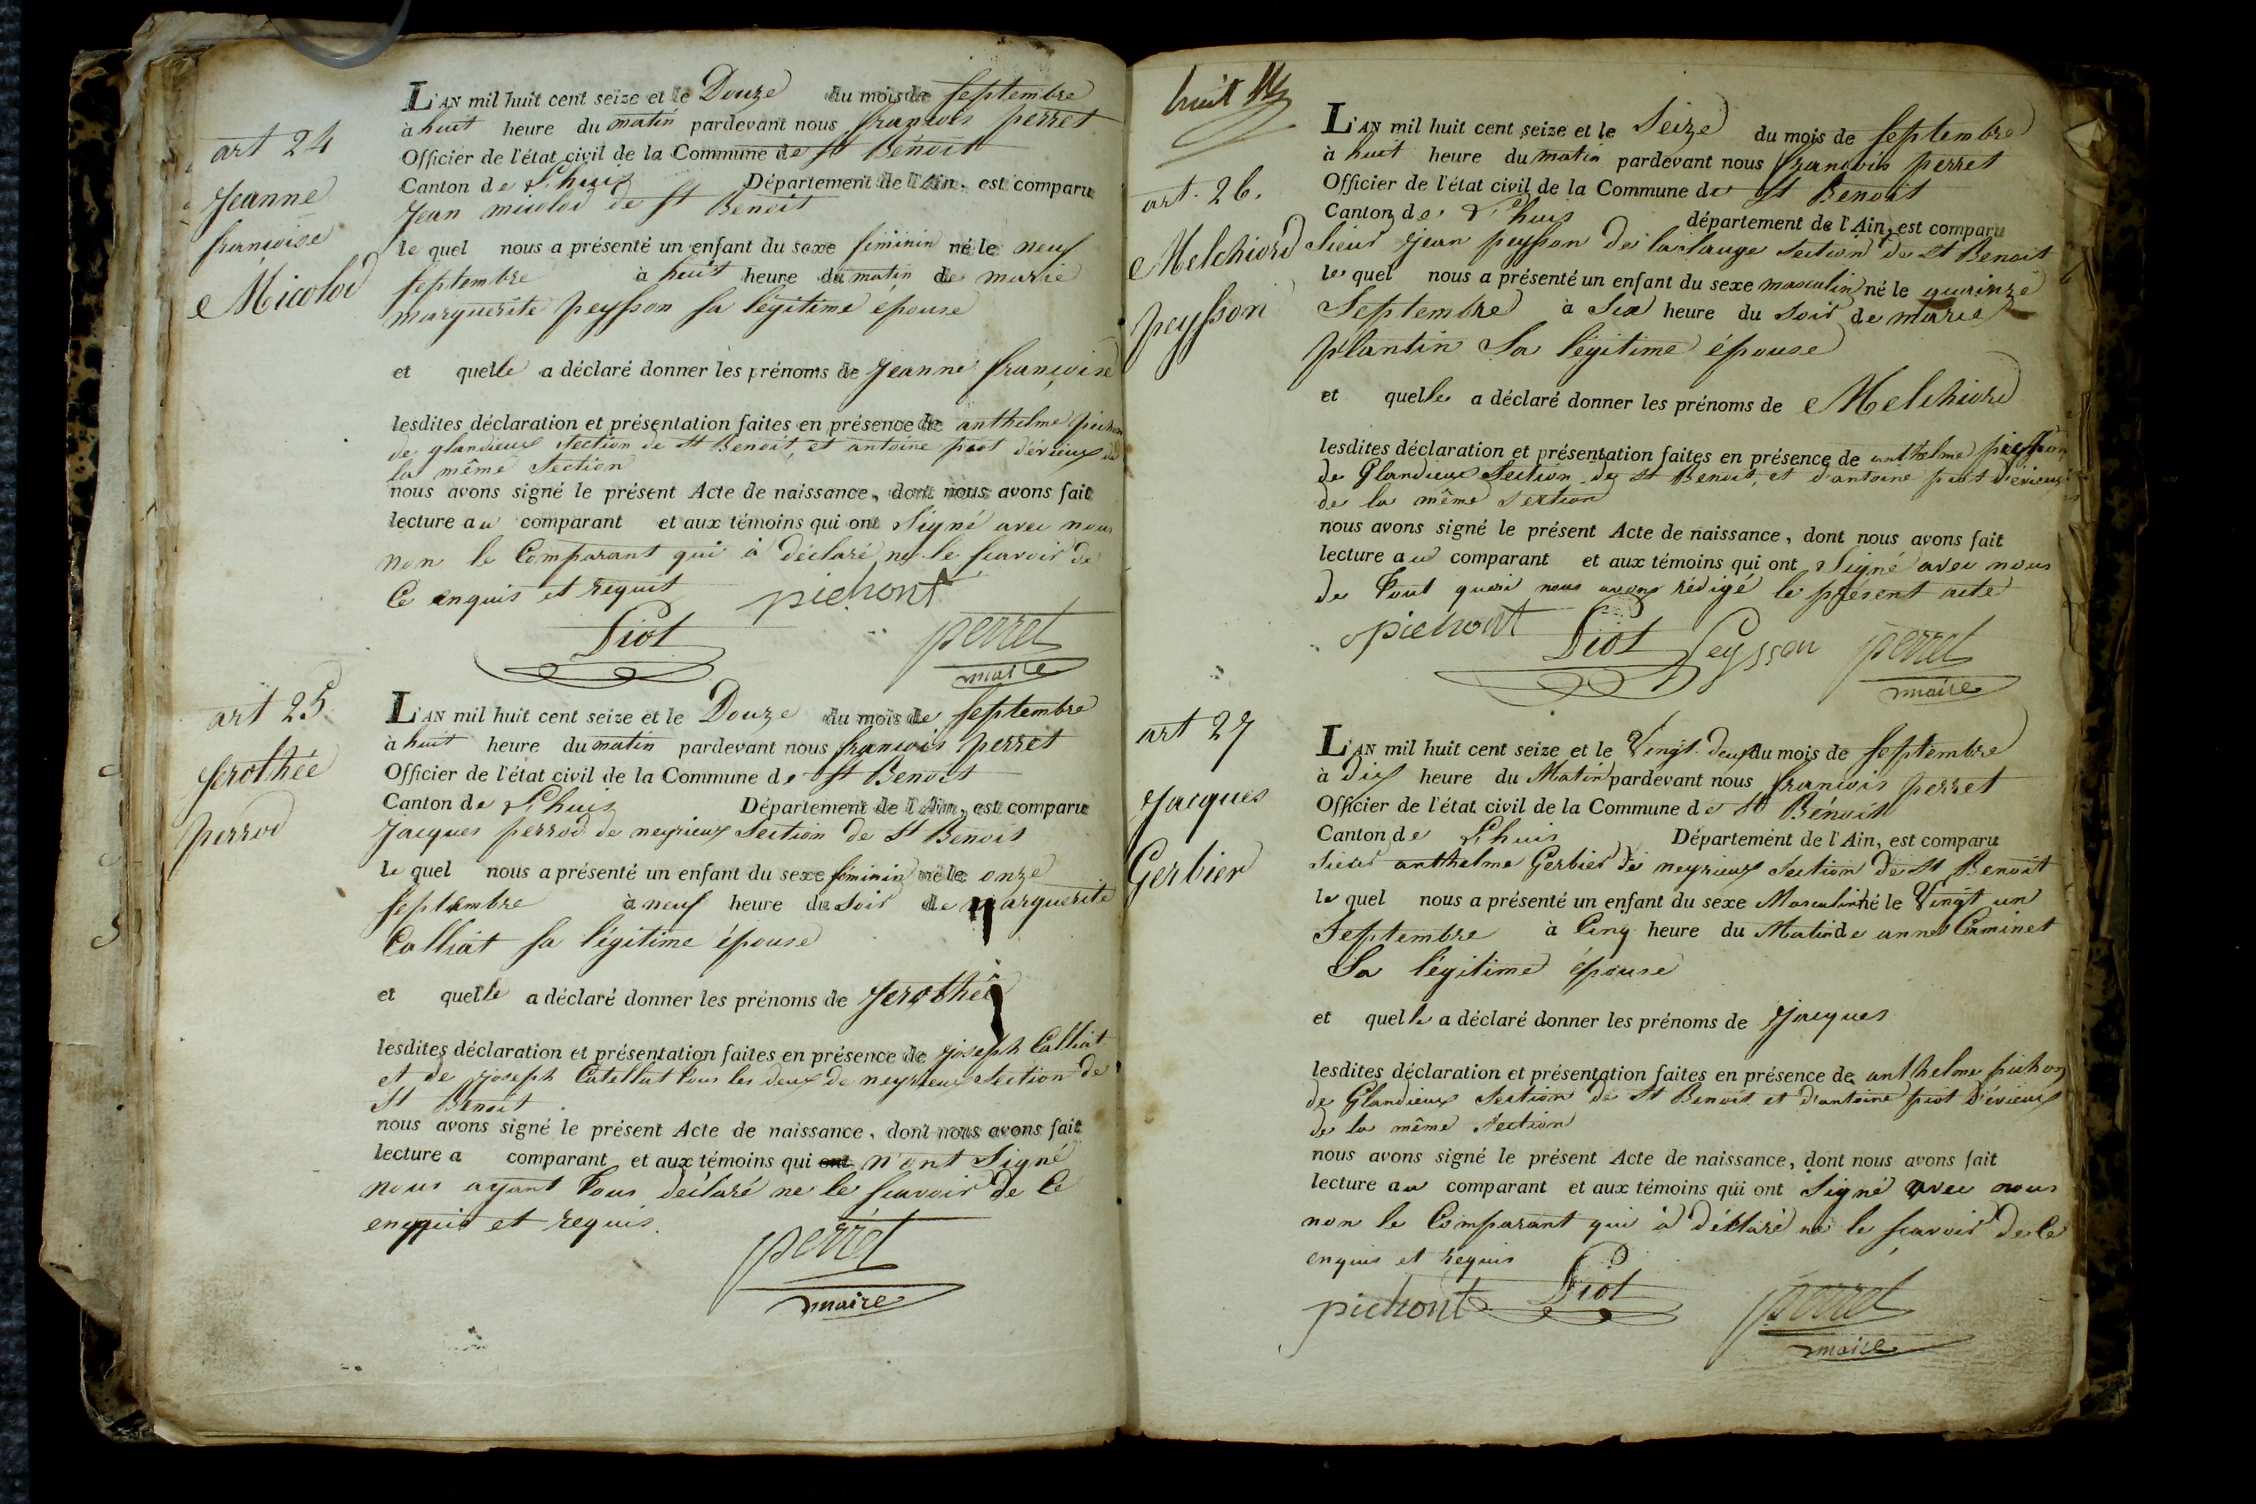 art 24
Jeanne
francoise
Micolod
L'AN mil huit cent seize et le Douze du mois de septembre
à huit heure du matin pardevant nous francois perret
Officier de l'état civil de la Commune de St Benoit
Canton de Lhuis Département de l'Ain, est comparu
Jean micolod de St Benoit
le quel nous a présenté un enfant du sexe feminin né le neuf
septembre à huit heure du matin de marie
marguerite peysson sa légitime épouse
et quelle a déclaré donner les prénoms de Jeanne francoise
lesdites déclaration et présentation faites en présence de anthelme pichon
de glandieux section de St Benoit, et antoine piot d'évieux de
la même section
nous avons signé le présent Acte de naissance, dont nous avons fait
lecture au comparant et aux témoins qui ont signé avec nous
non le Comparant qui à déclaré ne le scavoir de
Ce enquis et requit
pichont
Piot
perret
maire
art 25
Jerothée
perrod
L'AN mil huit cent seize et le Douze du mois de septembre
à huit heure du matin pardevant nous francois perret
Officier de l'état civil de la Commune de St Benoit
Canton de Lhuis Département de l'Ain, est comparu
Jacques perrod de neyrieux section de St Benoit
le quel nous a présenté un enfant du sexe feminin né le onze
septembre à neuf heure du soir de marguerite
Calliat sa légitime épouse
et quelle a déclaré donner les prénoms de Jerothée
lesdites déclaration et présentation faites en présence de joseph Calliat
et de joseph Catellut tous les deux de neyrieux section de
St Benoit
nous avons signé le présent Acte de naissance, dont nous avons fait
lecture a comparant et aux témoins qui ont n'ont signé
nous ayant tous déclaré ne le scavoir de Ce
enquis et requis.
perret
maire
huit
art. 26.
Melchiord
peysson
L'AN mil huit cent seize et le Seize du mois de septembre
à huit heure du matin pardevant nous francois perret
Officier de l'état civil de la Commune de St Benoit
Canton de Lhuis département de l'Ain, est comparu
sieur jean peysson de section de St Benoit
le quel nous a présenté un enfant du sexe masculin né le quinze
Septembre à Six heure du Soir de marie
plantin Sa légitime épouse
et quelle a déclaré donner les prénoms de Melchiord
lesdites déclaration et présentation faites en présence de anthelme pichon
de Glandieux Section de St Benoit, et d'antoine piot d'évieux
de la même section
nous avons signé le présent Acte de naissance, dont nous avons fait
lecture au comparant et aux témoins qui ont signé avec nous
de tout quoi nous avons rédigé le présent acte
pichont
Piot
Peysson
perret
maire
art 27
Jacques
Gerbier
L'AN mil huit cent seize et le Vingt-deux du mois de septembre
à dix heure du Matin pardevant nous francois perret
Officier de l'état civil de la Commune de St Benoit
Canton de Lhuis Département de l'Ain, est comparu
sieur anthelme Gerbier de neyrieux section de St Benoit
le quel nous a présenté un enfant du sexe Masculin né le Vingt un
Septembre à Cinq heure du Matin de anne Caminet
Sa légitime épouse
et quelle a déclaré donner les prénoms de Jacques
lesdites déclaration et présentation faites en présence de anthelme pichon
de Glandieux section de St Benoit et d'antoine piot d'évieux
de la même section
nous avons signé le présent Acte de naissance, dont nous avons fait
lecture au comparant et aux témoins qui ont signé avec nous
non le Comparant qui à déclaré ne le scavoir de Ce
enquis et requis
pichont
Piot
perret
maire